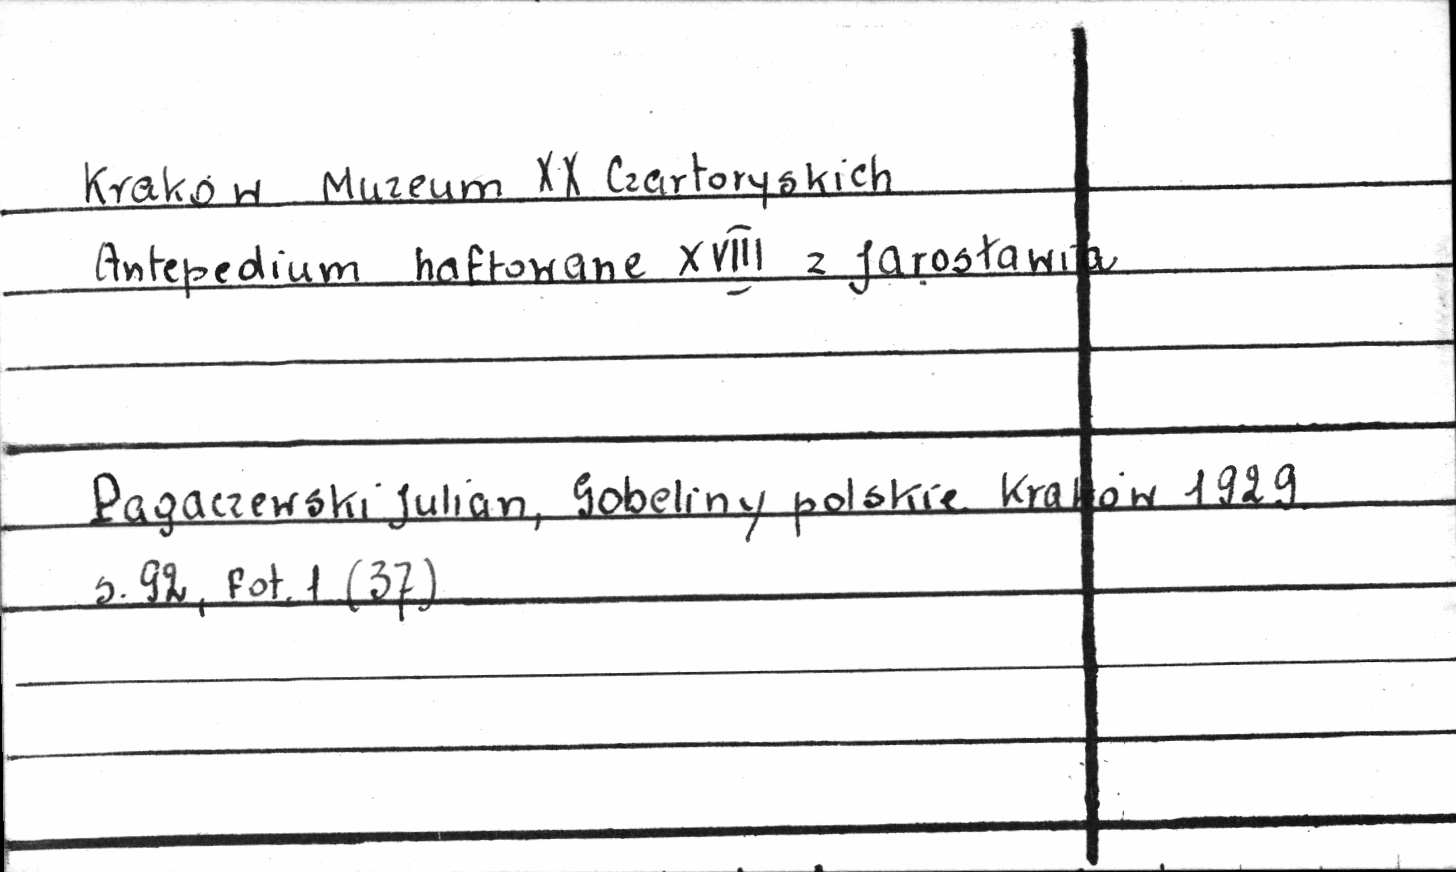 Kraków Muzeum XX Czartoryskich
Antepedium haftowane XVIII z Jarosławia
Pagaczewski Julian, Gobeliny polskie. Kraków 1929
s. 92, Fot. 1 (37)